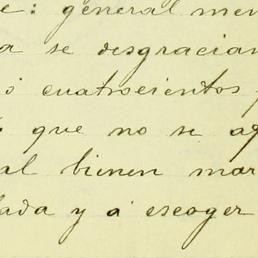 e: general men
a se desgracian
ó cuatrocientos
que no se a
al bienen mar
lada y á escoger